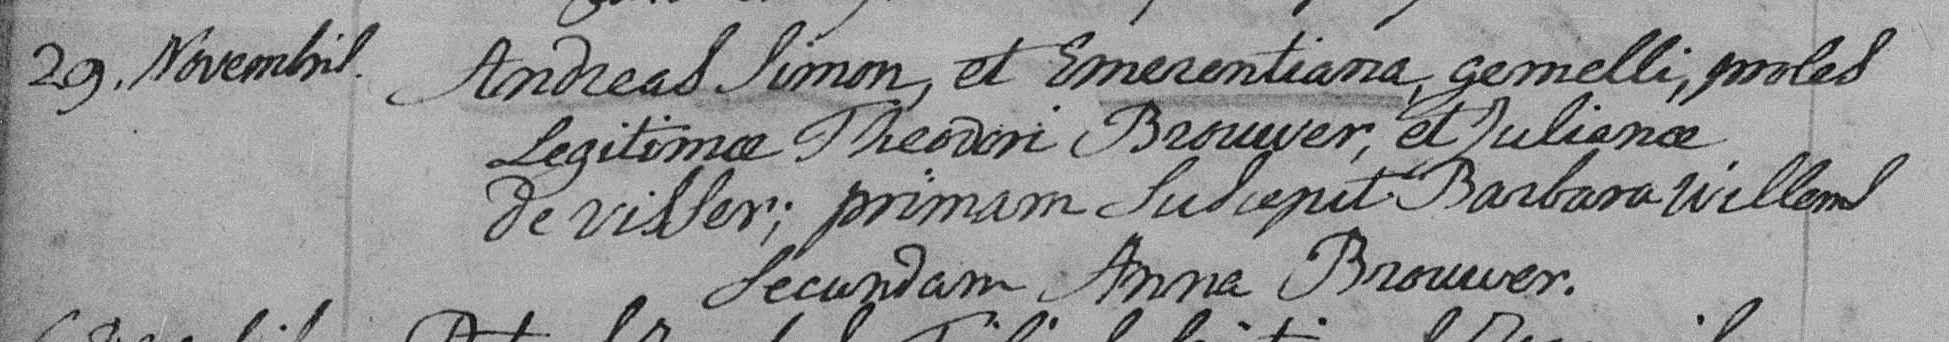 29. Novembris. Andreas Simon, et Emerentiana, gemelli, proles
Legitimæ Theodori Brouwer, et Julianæ
de visser; primam Suscepit Barbara Willems
Secundam Anna Brouwer.